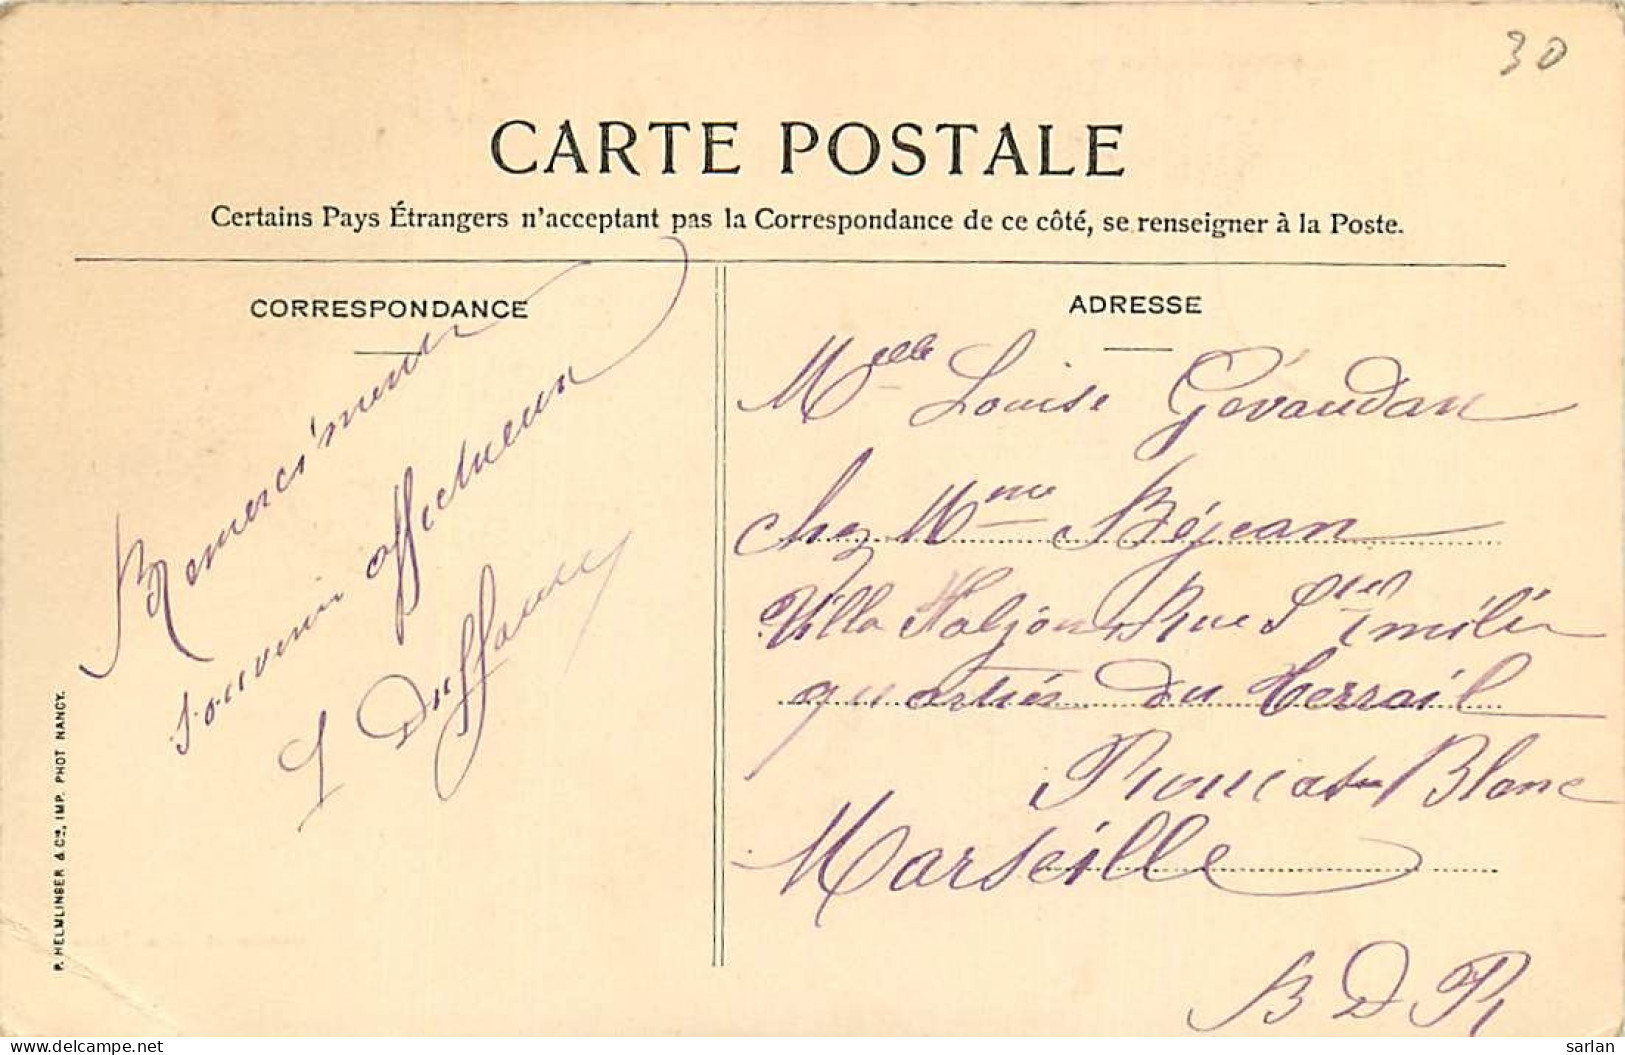 30
CARTE POSTALE
Certains Pays Étrangers n'acceptant pas la Correspondance de ce côté, se renseigner à la Poste.
CORRESPONDANCE
Remerciments
souvenir affectueux
L Duffaud
ADRESSE
Melle Louise Gévaudan
chez Mme Béjean
Villa Rue Ste Emilie
quartier du Terrail
Roucas Blanc
Marseille
B D R
P. HELMLINGER & Cie, IMP. PHOT NANCY.
delcampe.net
sarlan